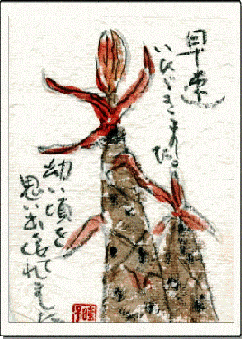 早速
いただきました。
幼い頃を
思い出させてくれました